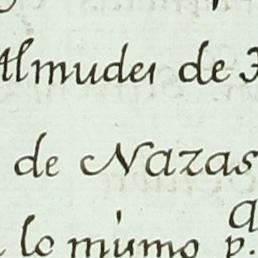 Almudes de
de Nazas
lo mismo p.